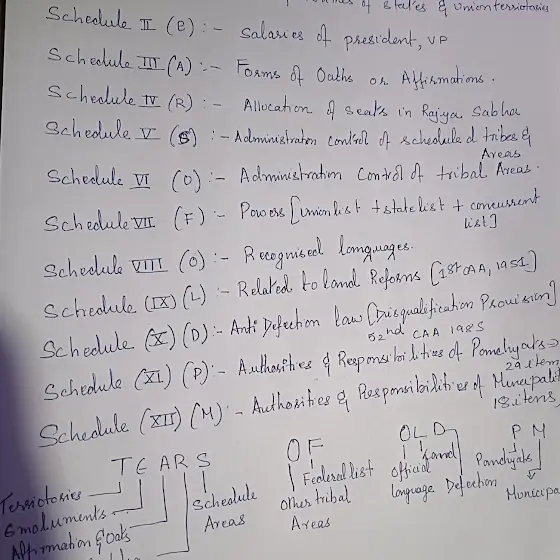 of States & Unionterriotories
Schedule II (E) :- Salaries of president, VP
Schedule III (A) :- Forms of Oaths or Affirmations.
Schedule IV (R) :- Allocation of seats in Rajya Sabha
Schedule V (S) :- Administration control of scheduled tribes &
Areas
Schedule VI (O) :- Administration Control of tribal Areas.
Schedule VII (F) :- Powers [union list + state list + concurrent
list]
Schedule VIII (O) :- Recognised languages.
Schedule (IX) (L) :- Related to land Reforms [1st CAA, 1951]
Schedule (X) (D) :- Anti Defection law [Disqualification Provision]
52nd CAA 1985
Schedule (XI) (P) :- Authorities & Responsibilities of Panchyats =>
29 item
Schedule (XII) (M) :- Authorities & Responsibilities of Muncipalit
18 items
TEARS OF OLD PM
Terriotories
Emoluments
Affirmation & Oats
Schedule
Areas
Federal list
Other tribal
Areas
Official
language
Land
Defection
Panchyats
Municipa